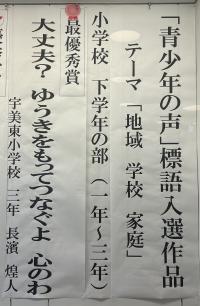 「青少年の声」標語入選作品
テーマ「地域 学校 家庭」
小学校 下学年の部（一年～三年）
最優秀賞
大丈夫？ ゆうきをもってつなぐよ 心のわ
宇美東小学校 三年 長濱 煌人